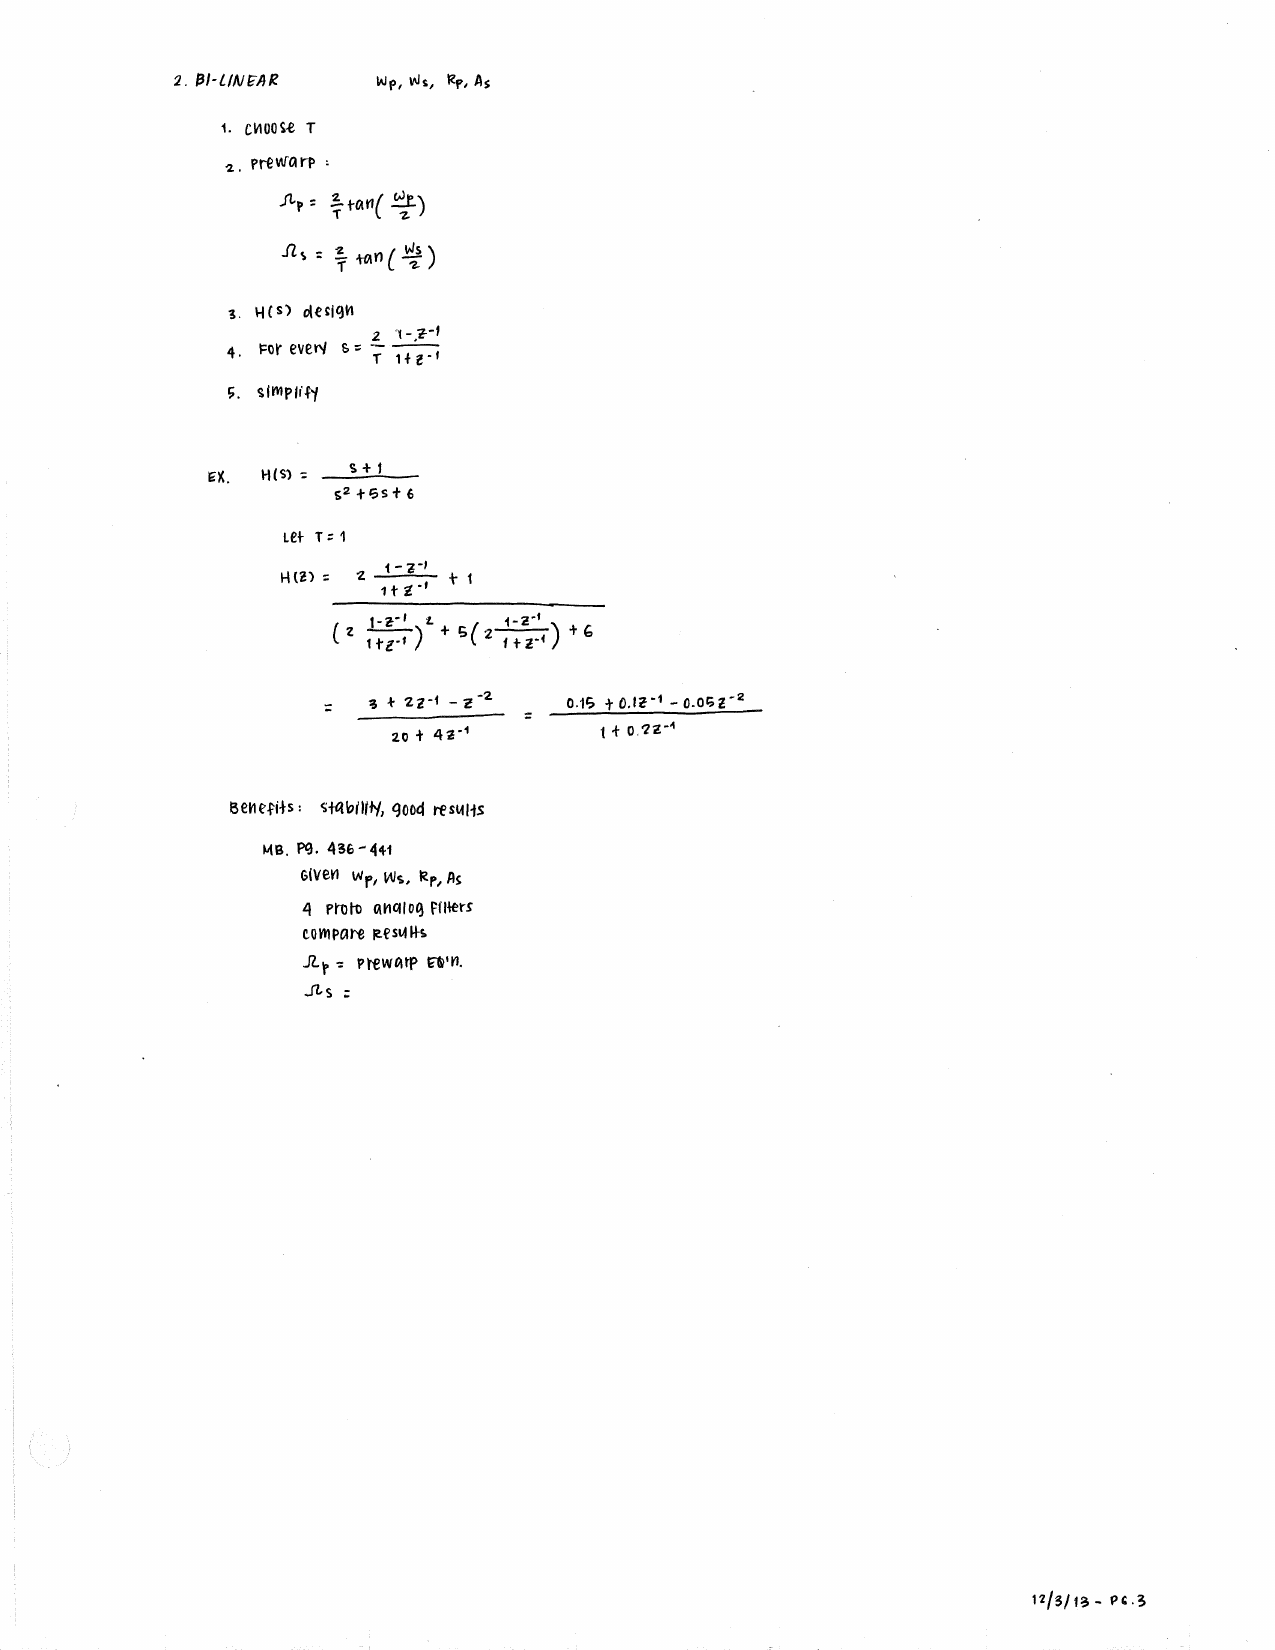 2. BI-LINEAR Wp, Ws, Rp, As
1. choose T
2. Prewarp :
Ωp = 2/T tan( ωp/2 )
Ωs = 2/T tan( Ws/2 )
3. H(s) design
4. For every s = 2/T (1-z⁻¹)/(1+z⁻¹)
5. simplify
EX. H(s) = (s+1)/(s²+5s+6)
Let T = 1
H(z) = (2 (1-z⁻¹)/(1+z⁻¹) + 1) / ((2 (1-z⁻¹)/(1+z⁻¹))² + 5(2 (1-z⁻¹)/(1+z⁻¹)) + 6)
= (3 + 2z⁻¹ - z⁻²)/(20 + 4z⁻¹) = (0.15 + 0.1z⁻¹ - 0.05z⁻²)/(1 + 0.2z⁻¹)
Benefits: stability, good results
MB. Pg. 436-441
Given Wp, Ws, Rp, As
4 proto analog filters
compare results
Ωp = prewarp EQ'n.
Ωs =
12/3/13 - PG.3